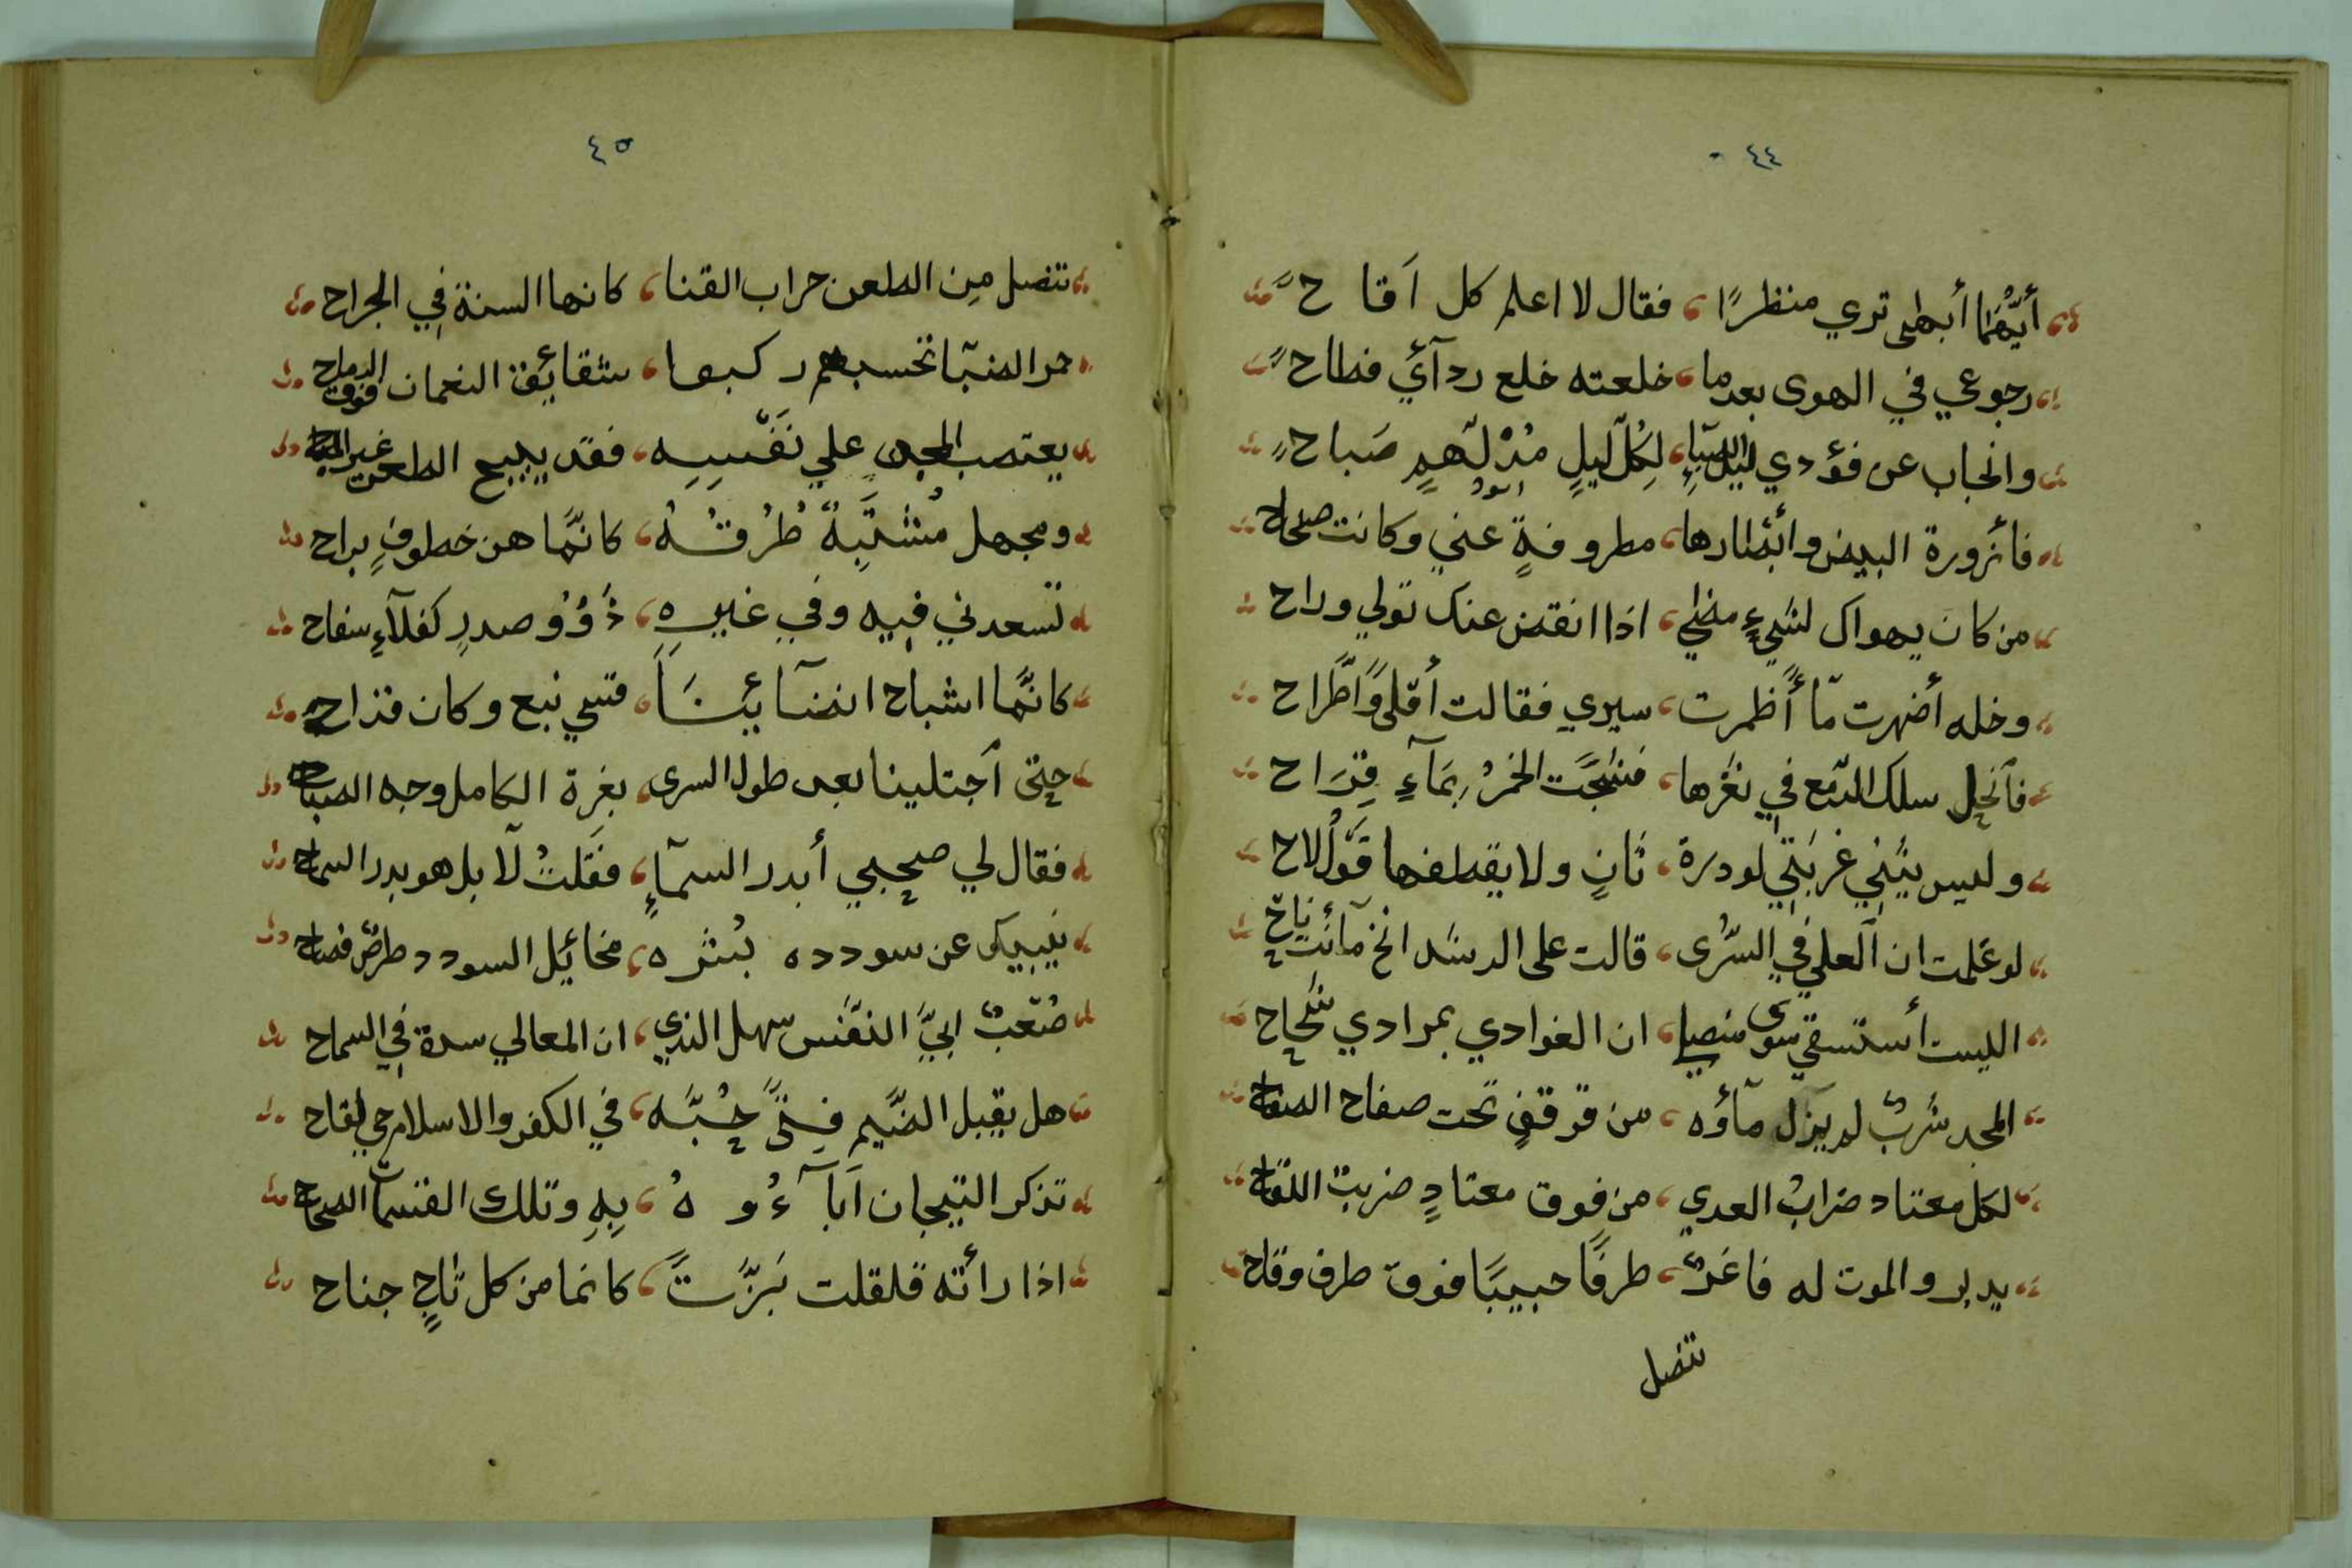 ٤٤
أيّهما أبهى تري منظرًا، فقال لا اعلم كل اَقاح
رجوعي في الهوى بعدما، خلعته خلع ردآئي فطاح
وانجاب عن فؤدي ليل الصبا، لكلّ ليلٍ مدلهمٍ صَباح
فأزورة البيض وأبصارها، مطروفةٍ عني وكانت صحاح
من كان يهواك لشيءٍ مضى، اذا انقض عنك تولي وراح
وخله أضهرت مّا أظمرت، سيري فقالت أقلىً وَاطّراح
فآنحل سلك الدّمع في نغرها، فشجّت الخمرُ بمَآءِ قِرَاح
وليس يثني غربتي لودرة، ثانٍ ولا يقطفها قَوْلُ لاح
لو عَلمت ان العلي في السّرى، قالت على الرشد انخ مآئت ناح
الليست أستسقي سوى منصلي، ان الغوادي بمرادي شحاح
المجد شربٌ لم يزل مآؤه، من قرقفٍ تحت صفاح الصفاح
لكل معتاد ضرابُ العدي، من فوق معتادٍ ضريب اللقاح
يدير والموت له فاغرٌ، طرفًا حبيبًا فوق طرف وقاح
تنصل
٤٥
تنصل مِن الطعن حراب القنا، كانها السنة في الجراح
حمر الضبآ تحسبهم ركبها، شقائِق النعمان فوق الرماح
يعتصب المجد علي نَفْسِهِ، فقد يبيح الطعن غير المباح
ومجهل مُشتَبِهةٌ طُرُقُهُ، كانّما هن خطوفٍ براح
تسعدني فيه وفي غيرِهِ، ذُؤُوْ صدرٍ كفلآءِ سفاح
كانّما اشباح انضآئِنَا، قسي نبع وكان قداح
حتى اَجتلينا بعد طول السرى، بغرة الكامل وجه الصباح
فقال لي صحبي أبدر السمآءٍ، فقلتُ لآ بل هو بدر السماح
ينبيك عن سودده بُشره، مخائِل السودد طرفٌ فصاح
صُعْبٌ ابيِّ النفَّس سهل الندي، ان المعالي سدة في السماح
هل يقبل الضَّيم فتىً حُبّه، في الكفر والاسلام حي لقاح
تذكر التيجان اَبآءُوهُ، بِهِ وتلك القسمات الصحاح
اذا رأته قلقلت بَزّتً، كانما من كل تاجٍ جناح